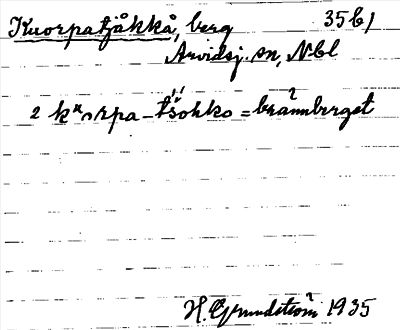 Kuorpatjåkkå, berg 35b1
Arvidsj. sn, Nbl
2 kᵘɔrpa-t́šohko = brännberget
H. Grundström 1935